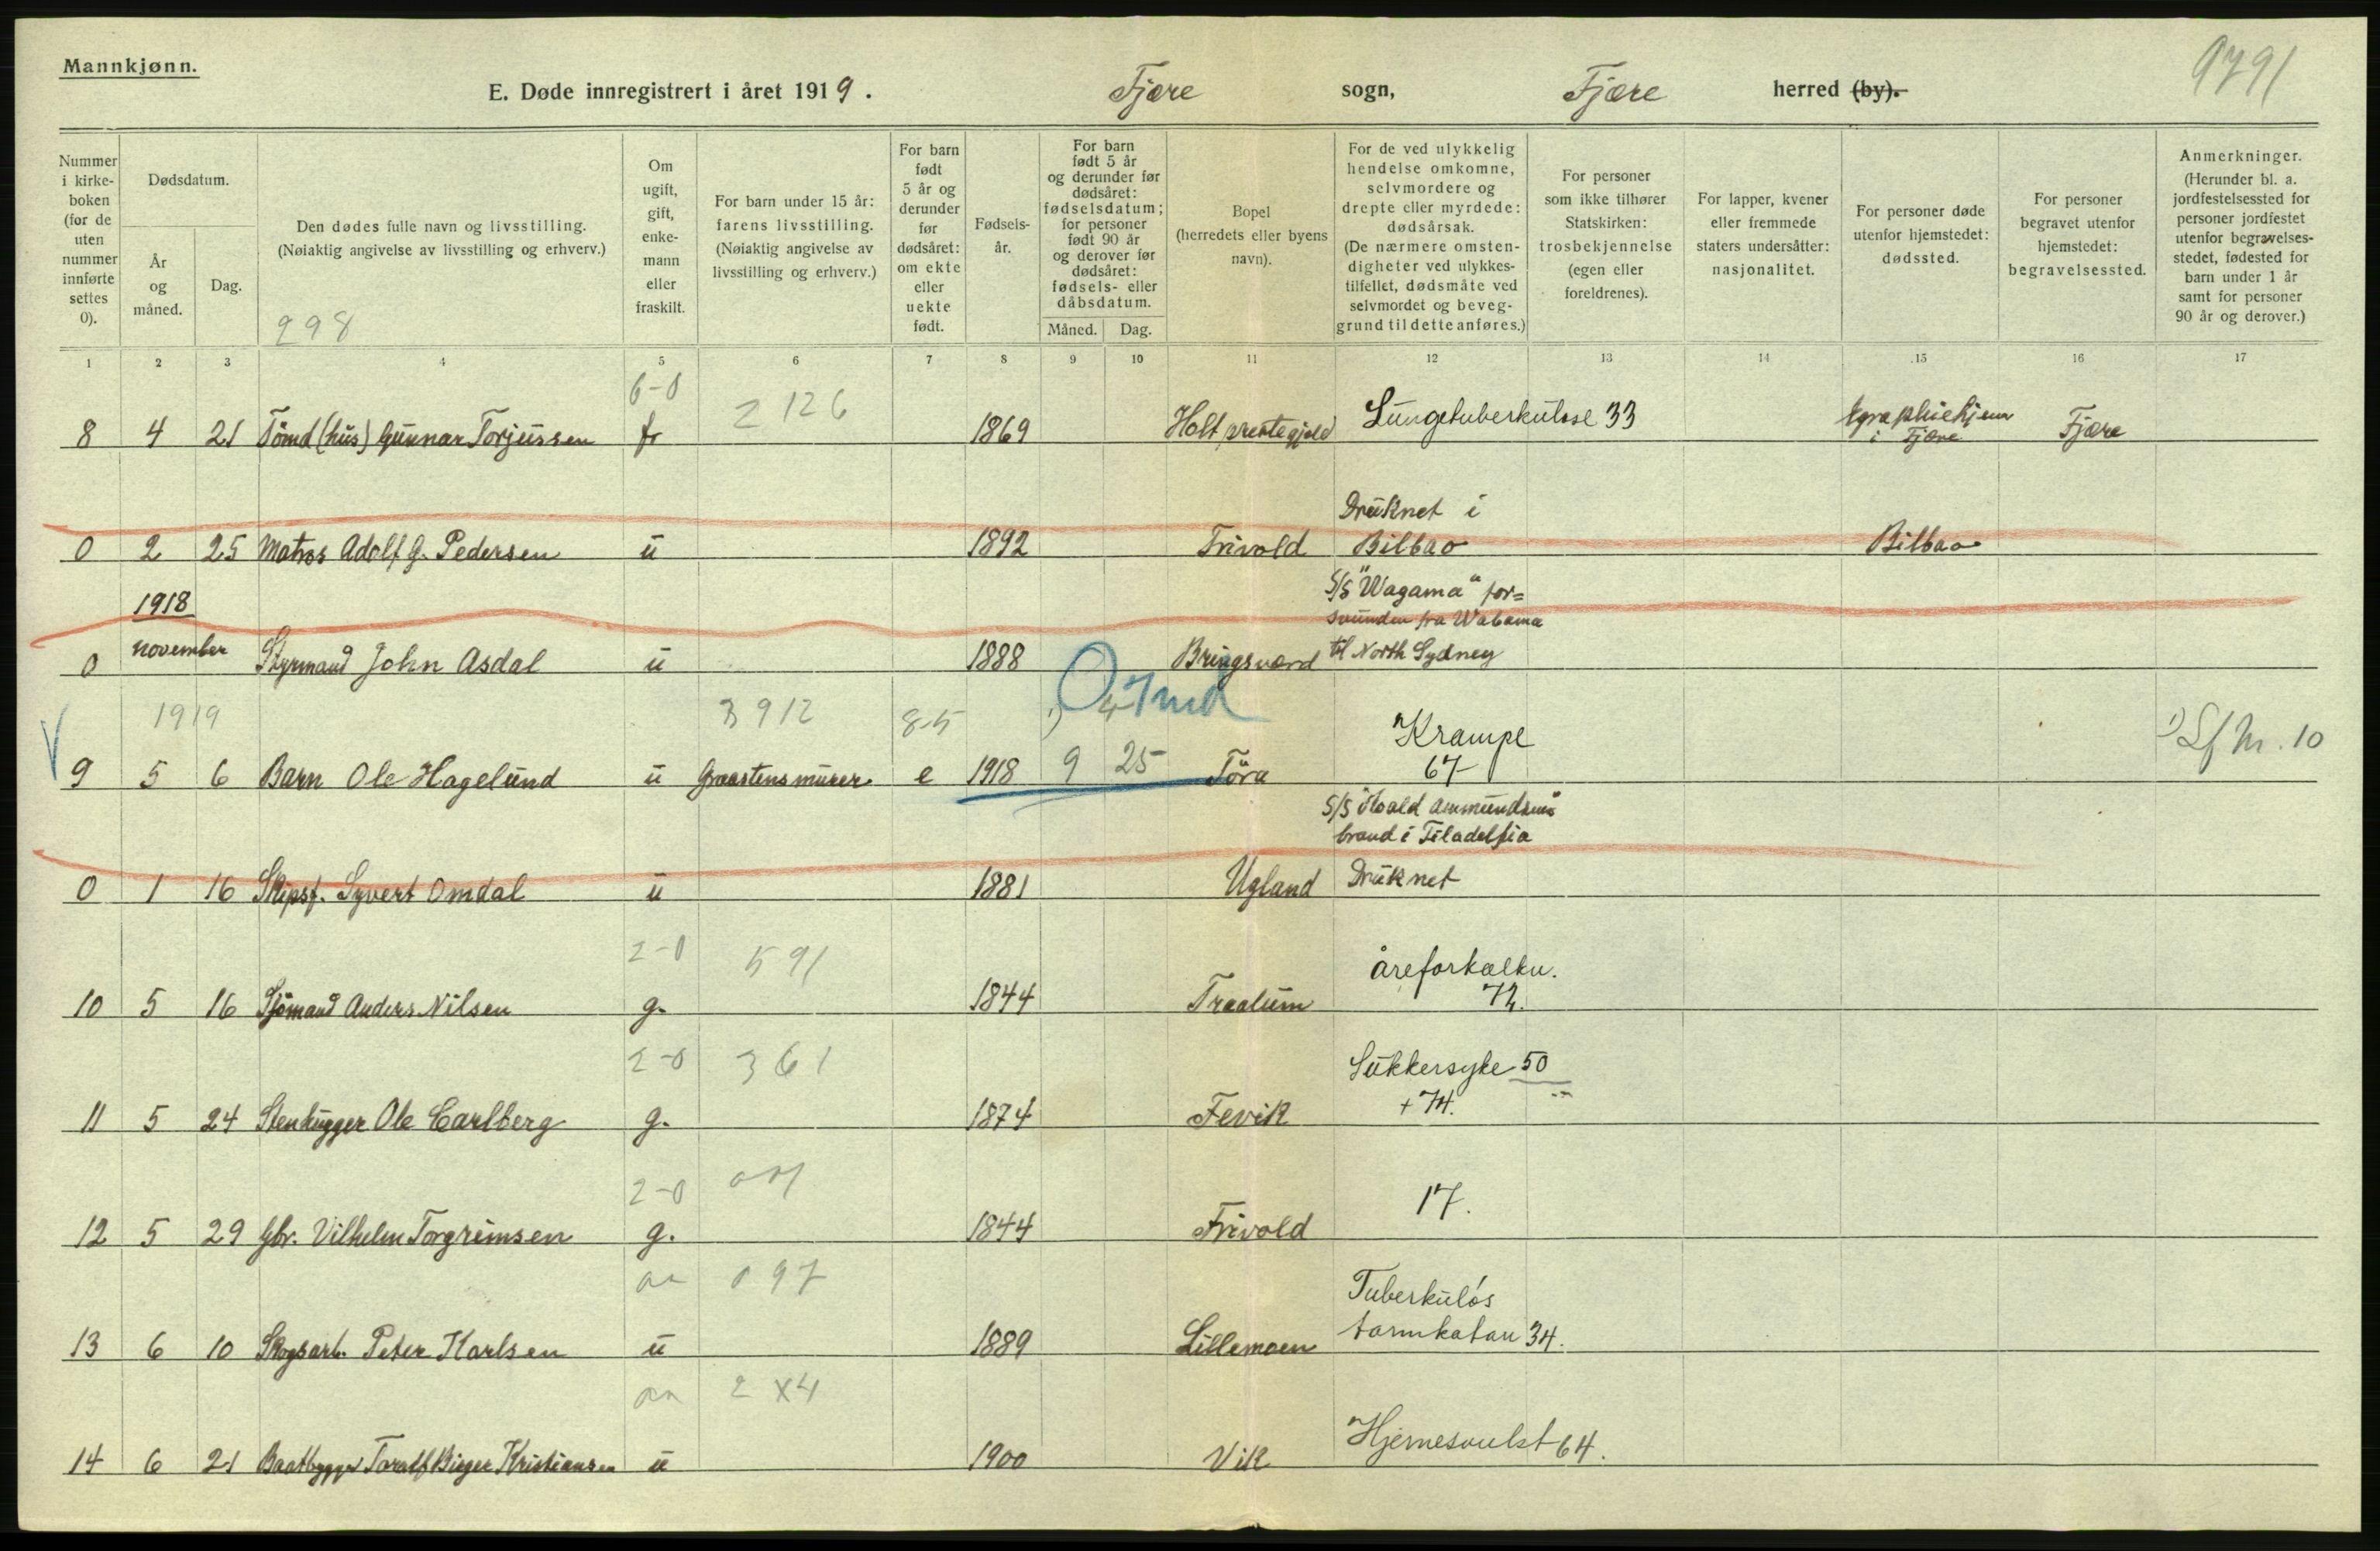 Mannkjønn.
9791
E. Døde innregistrert i året 1919. Fjære sogn, Fjære herred (by).
Nummer i kirke- boken (for de uten nummer innførte settes 0).
Dødsdatum.
År og måned.
Dag.
Den dødes fulle navn og livsstilling.
(Nøiaktig angivelse av livsstilling og erhverv.)
298
Om ugift, gift, enke- mann eller fraskilt.
For barn under 15 år: farens livsstilling. (Nøiaktig angivelse av livsstilling og erhverv.)
For barn født 5 år og derunder før dødsåret: om ekte eller uekte født.
Fødsels- år.
For barn født 5 år og derunder før dødsåret: fødselsdatum; for personer født 90 år og derover før dødsåret: fødsels- eller dåbsdatum.
Måned. Dag.
Bopel (herredets eller byens navn).
For de ved ulykkelig hendelse omkomne, selvmordere og drepte eller myrdede: dødsårsak. (De nærmere omsten- digheter ved ulykkes- tilfellet, dødsmåte ved selvmordet og beveg- grund til dette anføres.)
For personer som ikke tilhører Statskirken: trosbekjennelse (egen eller foreldrenes).
For lapper, kvener eller fremmede staters undersåtter: nasjonalitet.
For personer døde utenfor hjemstedet: dødssted.
For personer begravet utenfor hjemstedet: begravelsessted.
Anmerkninger. (Herunder bl. a. jordfestelsessted for personer jordfestet utenfor begravelses- stedet, fødested for barn under 1 år samt for personer 90 år og derover.)
1 2 3 4 5 6 7 8 9 10 11 12 13 14 15 16 17
6-0 2 126
8 4 21 Tömd (hus) Gunnar Torjussen fr 1869 Holt prestegjeld Lungetuberkulose 33 i Fjære Fjære
Druknet i
0 2 25 Matros Adolf G. Pedersen u 1892 Frivold Bilbao Bilbao
1918 S/S "Wagama" for=
svunden fra Wabama
0 november Styrmand John Asdal u 1888 Bringsværd til North Sydney
1919 3912 8-5 Krampe 1) Lf Nr. 10
9 5 6 Barn Ole Hagelund u Graastensmurer e 1918 9 25 Töra 67
S/S "Roald Ammundsen"
brand i Filadelfia
0 1 16 Skipsf. Syvert Omdal u 1881 Ugland Druknet
2-0 591 åreforkalkn.
10 5 16 Sjömand Anders Nilsen g. 1844 Traalum 72.
2-0 361 Sukkersyke 50
11 5 24 Stenhugger Ole Carlberg g. 1874 Fevik + 74.
2-0 17.
12 5 29 Gbr. Vilhelm Torgrimsen g. 1844 Frivold
097 Tuberkuløs
13 6 10 Skogsarb. Peter Karlsen u 1889 Lillemoen tarmkatar 34.
2 X4
14 6 21 Baatbygger Toralf Birger Kristiansen u 1900 Vik Hjernesvulst 64.